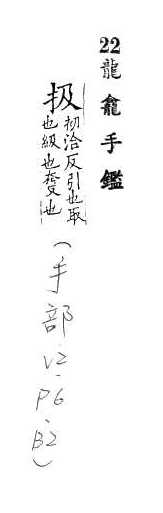 22 龍龕手鑑
扱 初洽反引也取
也級也 也
(手部.V2.P6.B2)